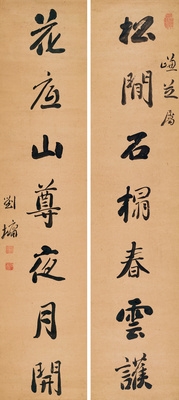 松間石榻春雲護
芝屬
花底山尊夜月開
劉墉